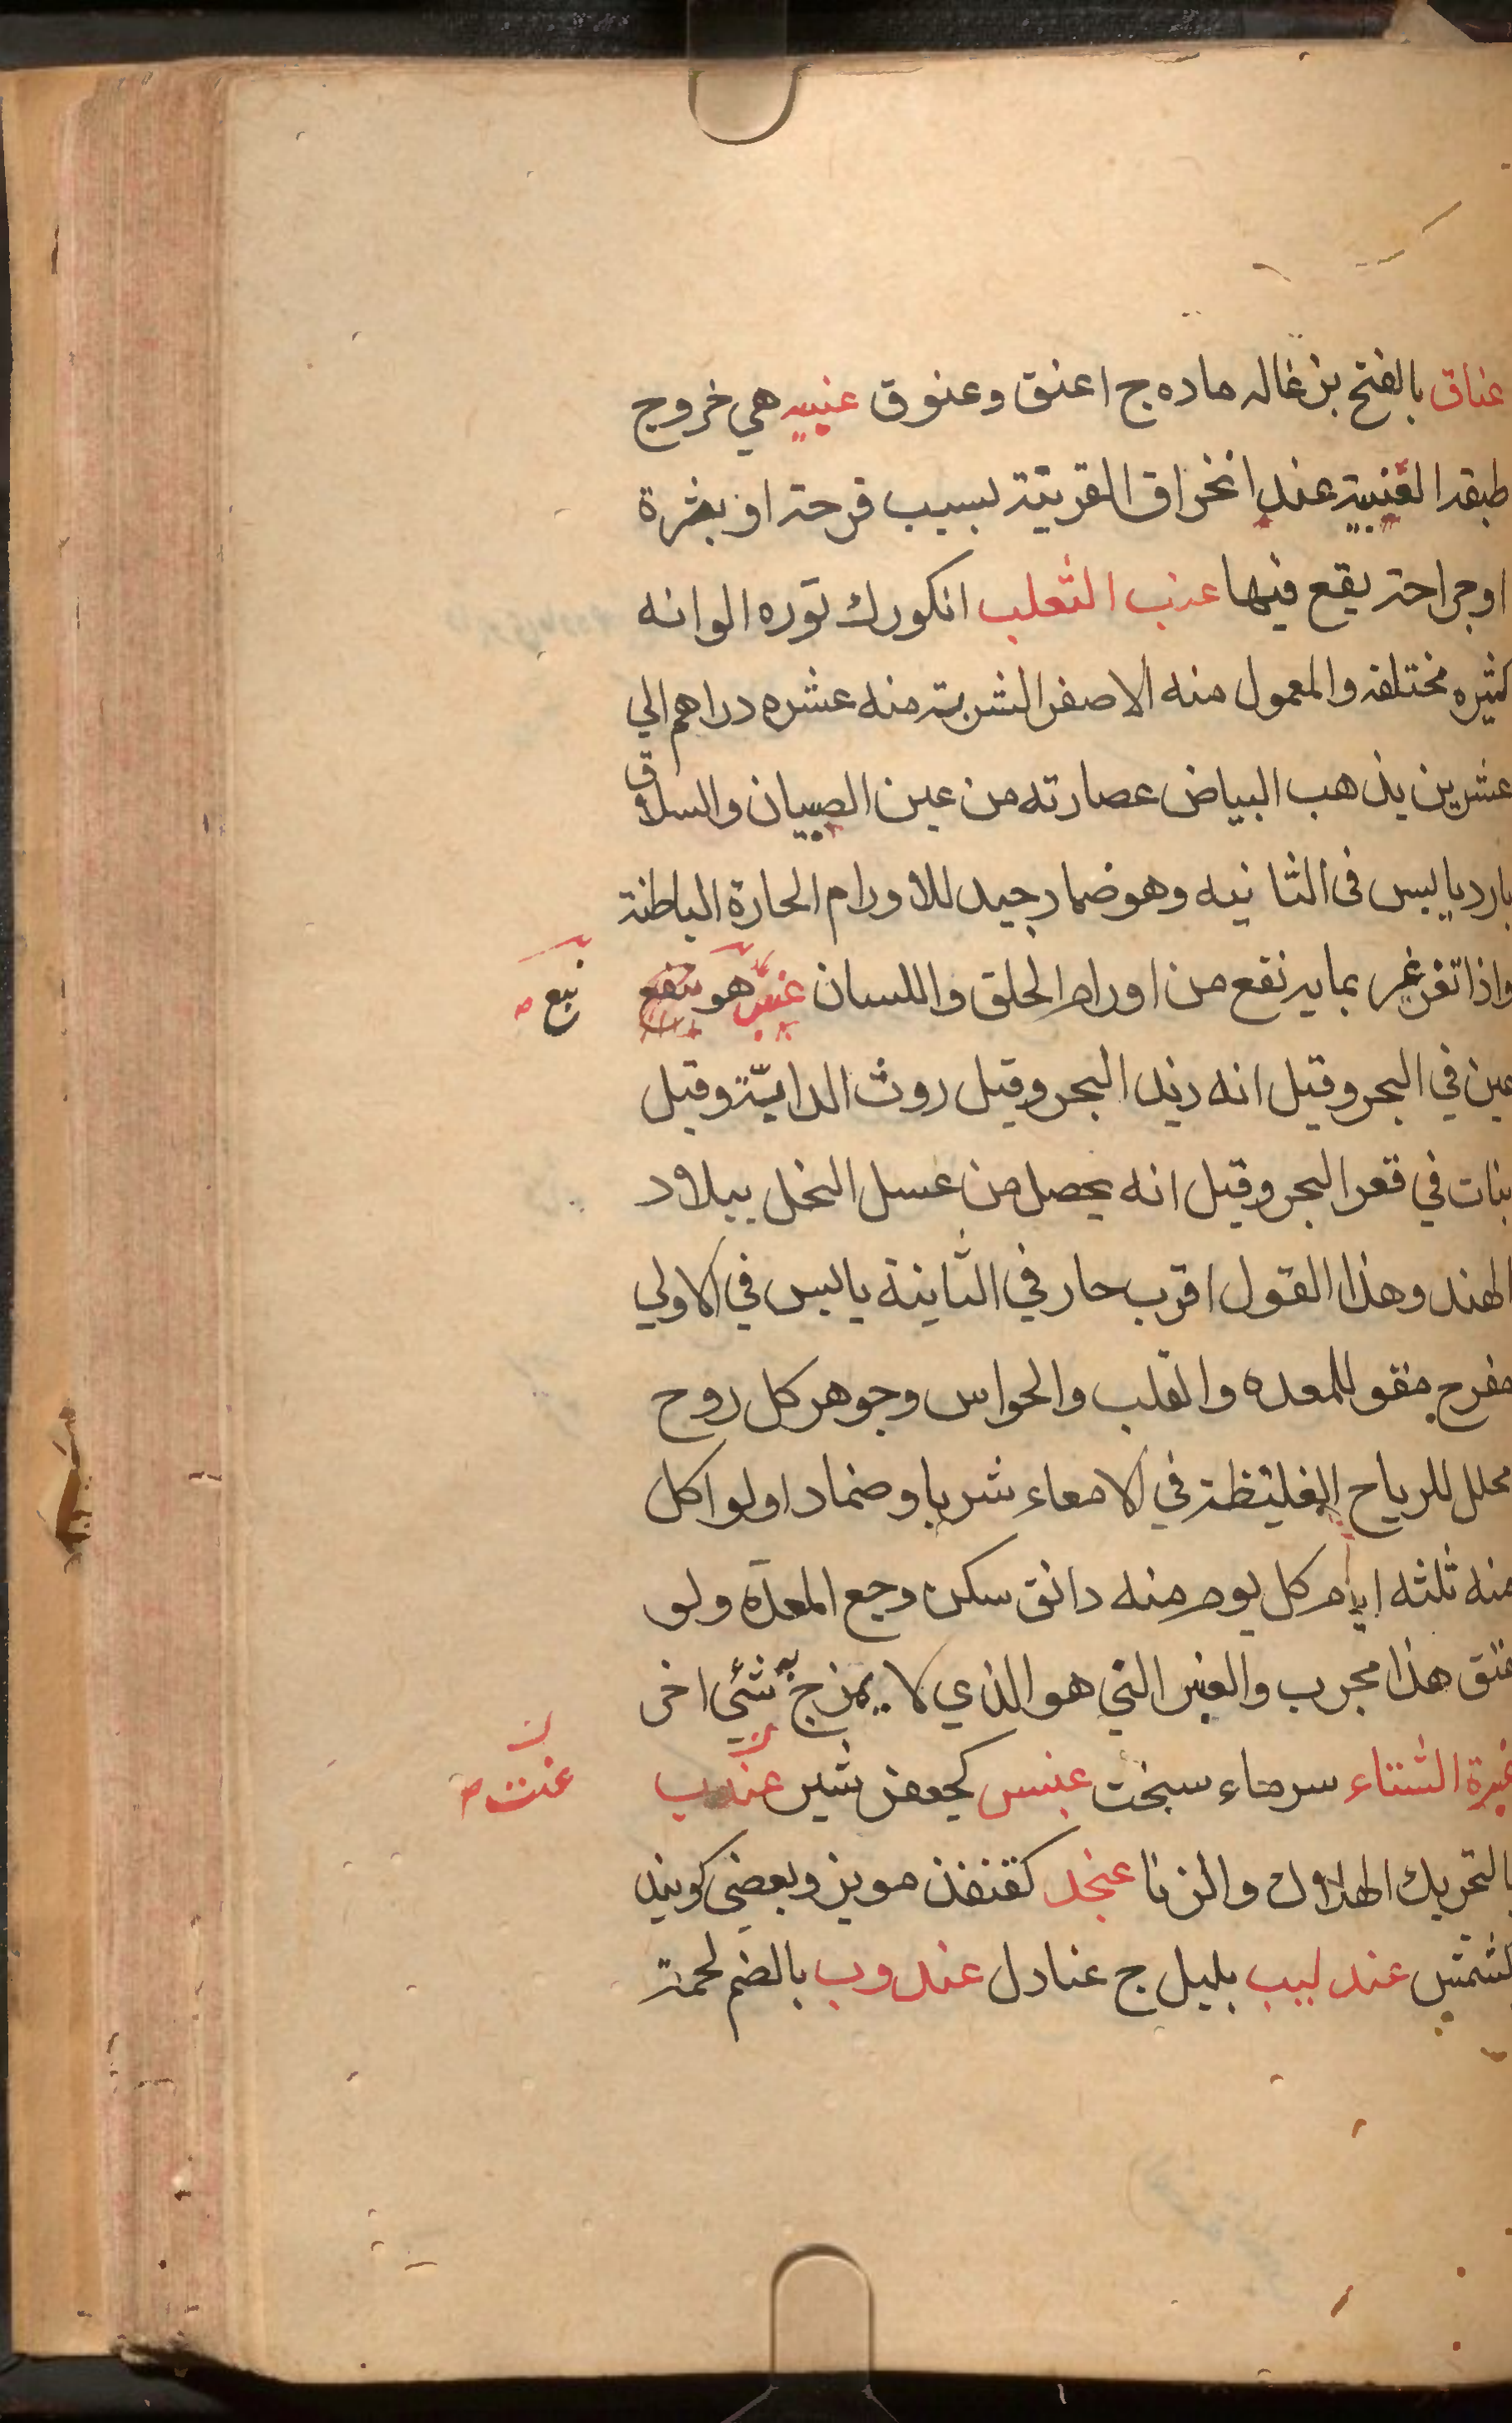 عناق بالفتح بزغاله ماده ج اعنق وعنوق عنبيه هي خروج
طبقه العنبية عند انخراق القرنية لسبب قرحة او بثرة
او جراحة يقع فيها عنب الثعلب انكورك توره الوانه
كثيره مختلفه والمعمول منه الاصفر الشربة منه عشره دراهم الي
عشرين يذهب البياض عصارته من عين الصبيان والسلاق
بارد يابس في الثانيه وهو ضماد جيد للاورام الحارة الباطنة
واذا تغرغر بمايه نفع من اورام الحلق واللسان عنبر هو
نبع
عين في البحر وقيل انه زبد البحر وقيل روث الدابة وقيل
نبات في قعر البحر وقيل انه يحصل من عسل النحل ببلاد
الهند وهذا القول اقرب حار في الثانية يابس في الاولي
مفرح مقو للمعده والقلب والحواس وجوهر كل روح
محلل للرياح الغليظة في الامعاء شربا وضمادا ولو اكل
منه ثلثه ايام كل يوم منه دانق سكن وجع المعدة ولو
عتق هذا مجرب والعنبر الني هو الذي لا يمزج به شئي اخر
عنبرة الشتاء سرماء سخت عنبس كجعفر شير
عنت
بالتحريك الهلاك والزنا عنجد كقنفذ مويز وبعضي كويند
كشمش عندليب بلبل ج عنادل عندوب بالضم لحمة